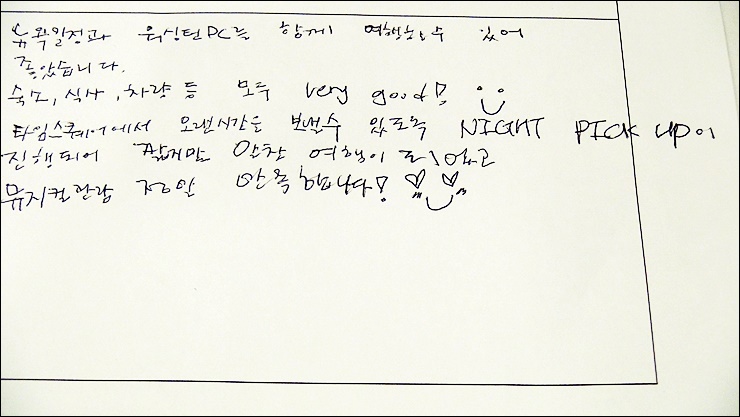 뉴욕일정과 워싱턴DC를 함께 여행할수 있어
좋았습니다.
숙소, 식사, 차량 등 모두 very good!
타임스퀘어에서 오랜시간을 보낼수 있도록 NIGHT PICK UP이
진행되어 짧지만 알찬 여행이 되었고
뮤지컬관람 정말 만족합니다!